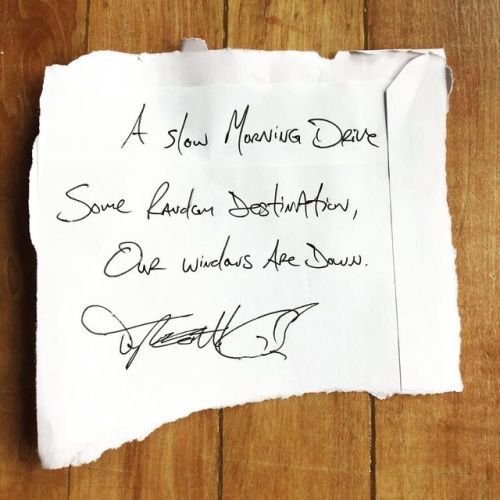 A slow Morning Drive
Some Random Destination,
Our windows Are Down.